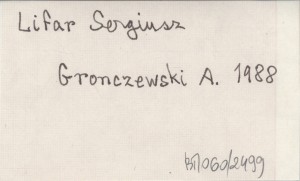 Lifar Sergiusz
Gronczewski A. 1988
BN060/2499